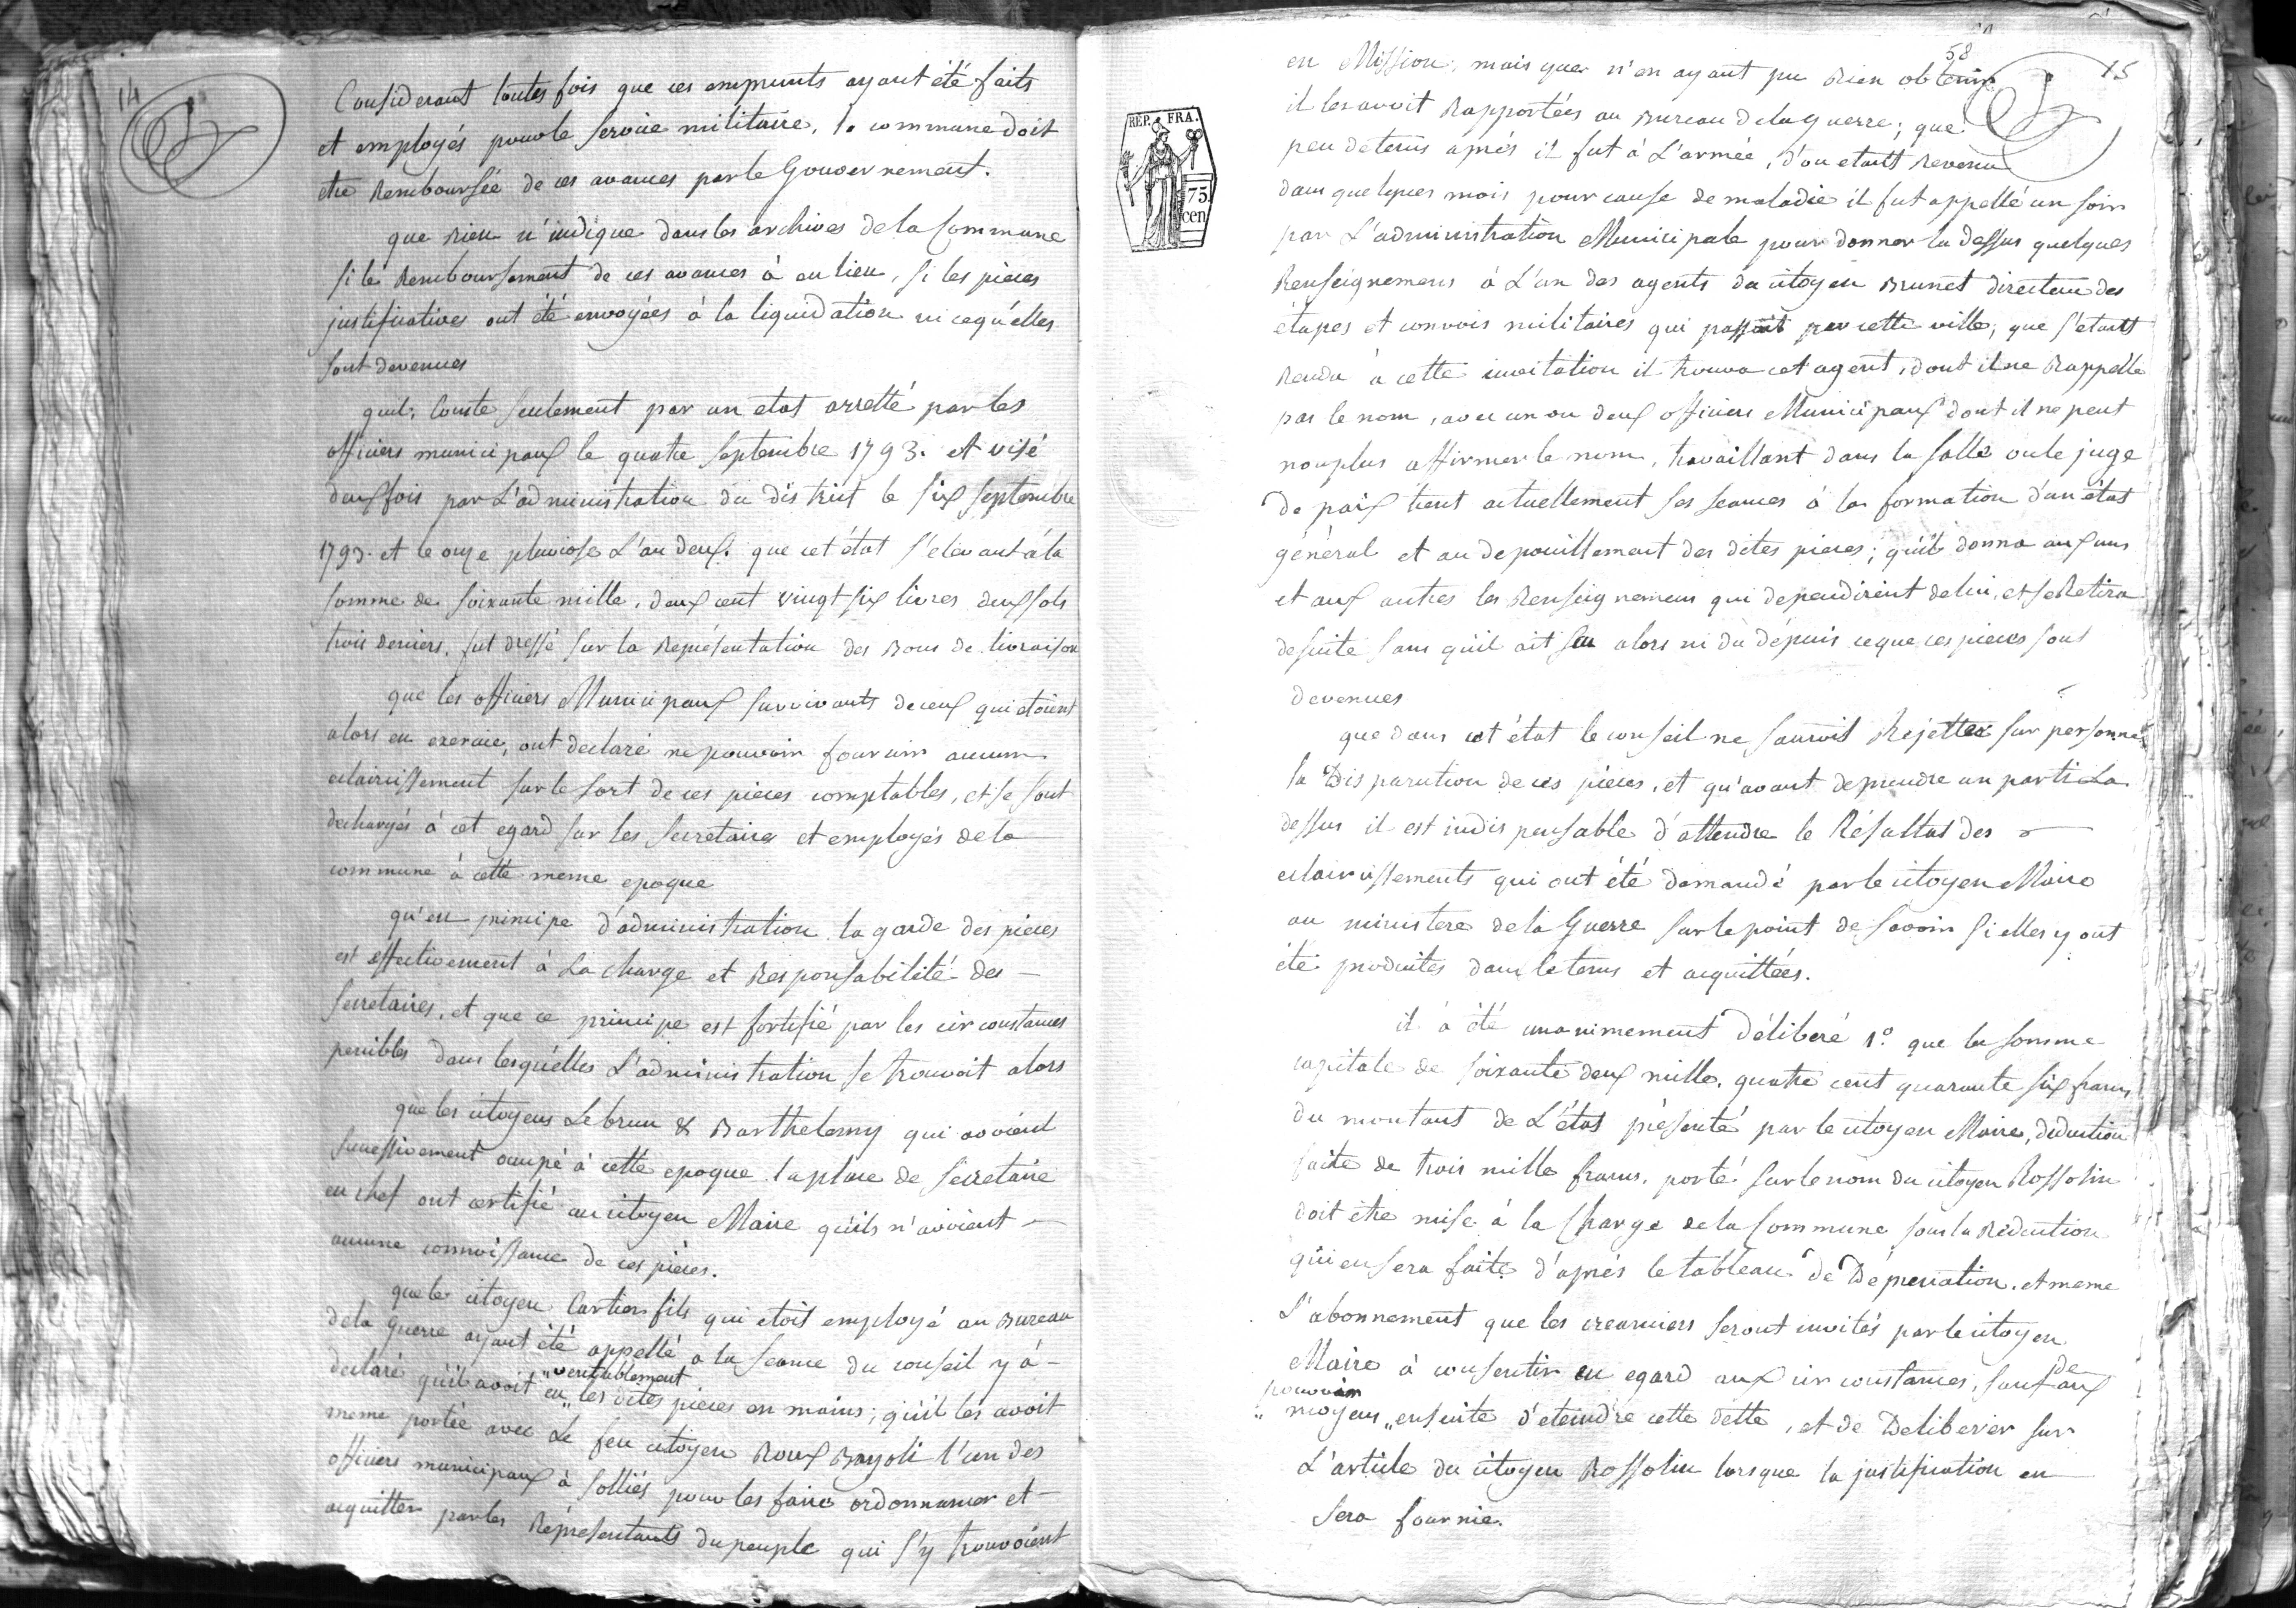 14
Considerant toutes fois que ces emprunts ayant été faits
et employés pour le service militaire, la commune doit
etre Remboursée de ces avances par le Gouvernement.
que Rien n'indique dans les archives de la Commune
si le Remboursement de ces avances à eu lieu, si les pieces
justificatives ont été envoyées à la liquidation ni ce qu'elles
sont devenues
quil Conste seulement par un etat arretté par les
officiers municipaux le quatre septembre 1793. et visé
deux fois par L'administration du district le six septembre
1793. et le onze pluviose L'an deux. que cet état s'élevant à la
somme de soixante mille, deux cent vingt six livres deux sols
trois deniers. fut dressé sur la Représentation des Bons de livraison
que les officiers Municipaux survivants de ceux qui etoient
alors en exercice, ont declaré ne pouvoir fournir aucun
eclaircissement sur le sort de ces pieces comptables, et se sont
dechargés à cet egard sur les secretaires et employés de la
commune à cette meme epoque
qu'en principe d'administration la garde des pieces
est effectivement à La charge et Responsabilité des
secretaires, et que ce principe est fortifié par les circonstances
penibles dans lesquelles L'administration se trouvoit alors
que les citoyens Lebrun & Barthelemy qui avoient
successivement occupé à cette epoque la place de secretaire
en chef ont certifié au citoyen Maire qu'ils n'avoient
aucune connoissance de ces pieces.
que le citoyen Cartier fils qui etoit employé au Bureau
de la guerre ayant été appellé a la seance du conseil y à
declaré qu'il avoit eu "veritablement" les dites pieces en mains; qu'il les avoit
meme portée avec Le feu citoyen Roux Bayoli l'un des
officiers municipaux à solliés pour les faire ordonnancer et
acquitter par les Représentants du peuple qui s'y trouvoient
58
15
REP. FRA.
75
cen
en Mission, mais que n'en ayant pu Rien obtenir
il les avoit Rapportées au Bureau de la guerre; que
peu de tems aprés il fut à L'armée, d'ou etant Revenu
dans quelques mois pour cause de maladie il fut appellé un soir
par L'administration Municipale pour donner la dessus quelques
Renseignemens à L'un des agents du citoyen Brunet directeur des
étapes et convois militaires qui passoit par cette ville, que s'etant
Rendu à cette invitation il trouva cet agent, dont il ne Rappelle
pas le nom, avec un ou deux officiers Municipaux dont il ne peut
non plus affirmer le nom, travaillant dans la salle ou le juge
de paix tient actuellement ses seances à la formation d'un état
général et au depouillement des dites pieces; qu'il donna aux uns
et aux autres les Renseignemens qui dependirent de lui, et se Retira
de suite sans qu'il ait su alors ni du depuis ce que ces pieces sont
devenues
que dans cet état le conseil ne sauroit Rejetter sur personne
la Disparution de ces pieces, et qu'avant de prendre un parti La
dessus il est indispensable d'attendre le Résultat des
eclaircissements qui ont été demandé par le citoyen Maire
au ministere de la Guerre sur le point de savoir si elles y ont
été produites dans le tems et acquittées.
il à été unanimement Délibéré 1.° que la somme
capitale de soixante deux mille, quatre cent quarante six francs
du montant de L'état présenté par le citoyen Maire, deduction
faite de trois mille francs, porté sur le nom du citoyen Rossolin
doit être mise à la Charge de la Commune sous la Réduction
qui en sera faite d'aprés le tableau de Dépreciation, et meme
L'abonnement que les creanciers seront invités par le citoyen
Maire à consentir eu egard aux circonstances, sauf aux
de pouvoir
moyens ensuite d'eteindre cette dette, et de Deliberer sur
L'article du citoyen Rossolin lorsque la justification en
sera fournie.